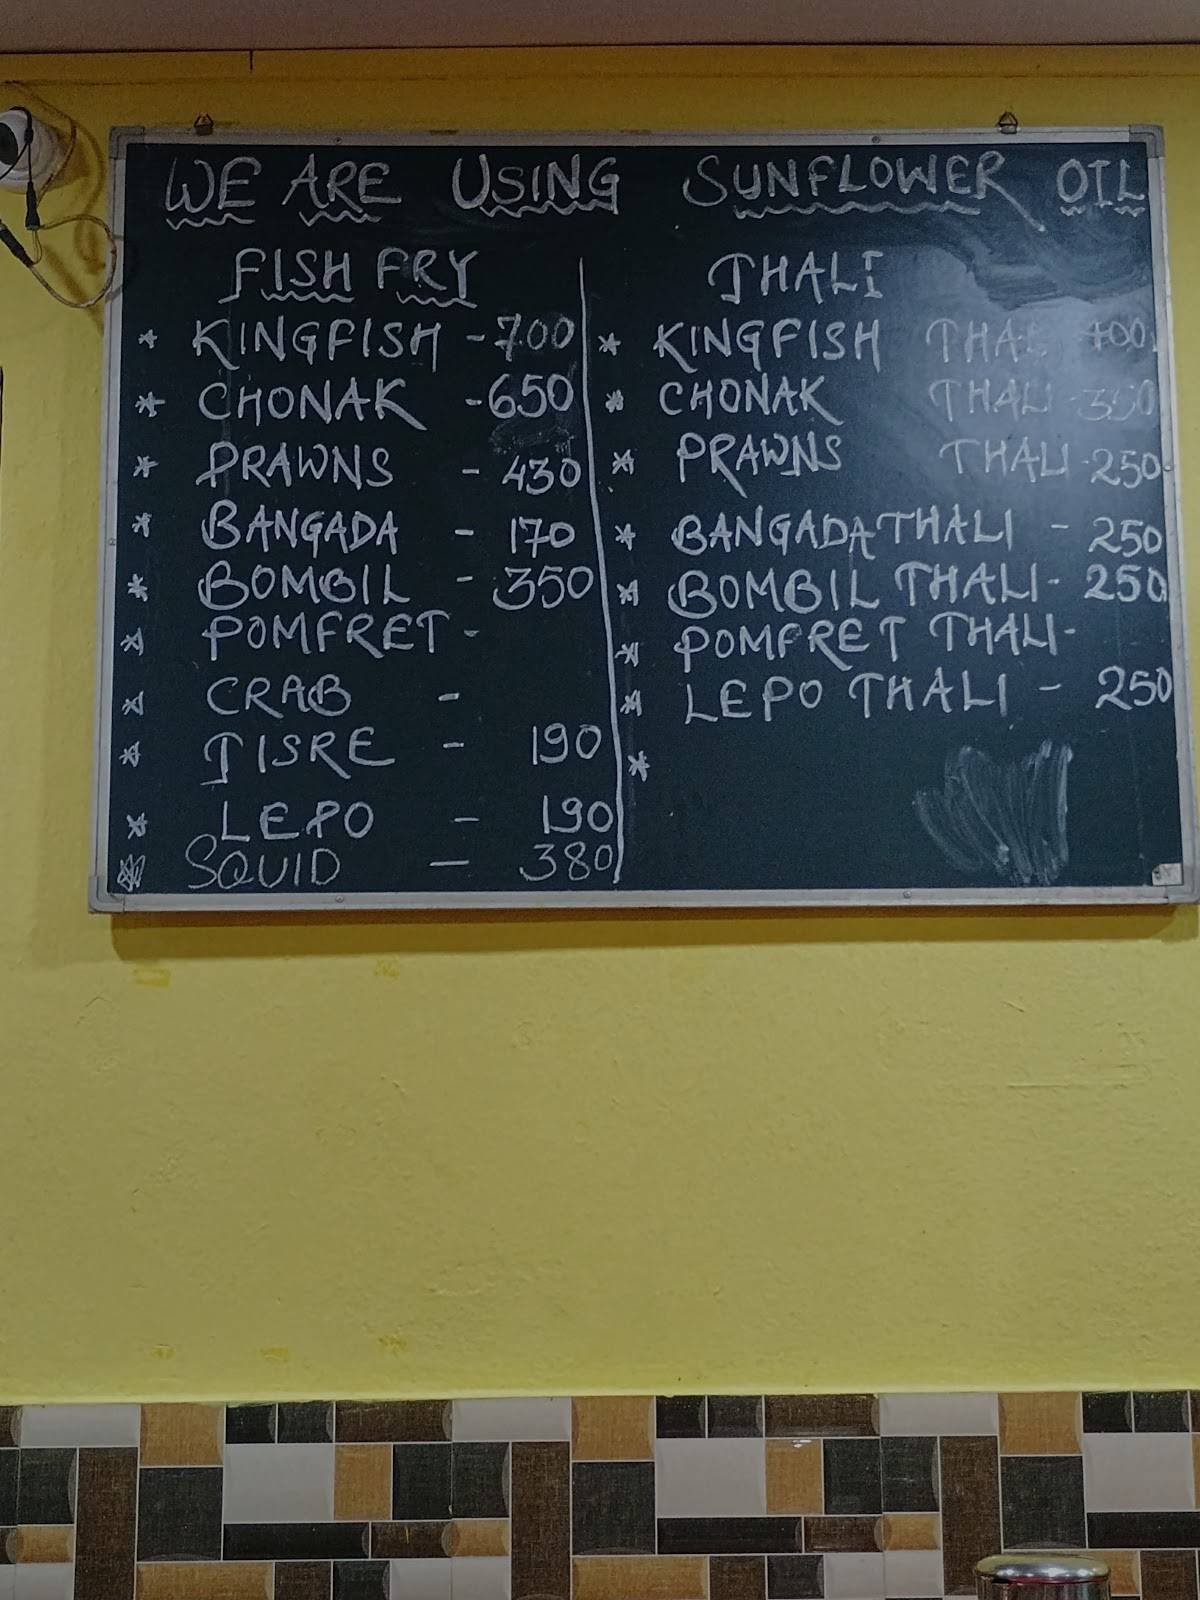 WE ARE USING SUNFLOWER OIL
FISH FRY
* KINGFISH - 700
* CHONAK - 650
* PRAWNS - 430
* BANGADA - 170
* BOMBIL - 350
* POMFRET -
* CRAB -
* TISRE - 190
* LEPO - 190
* SQUID — 380
THALI
* KINGFISH THALI 400
* CHONAK THALI - 350
* PRAWNS THALI - 250
* BANGADA THALI - 250
* BOMBIL THALI - 250
* POMFRET THALI -
* LEPO THALI - 250
*